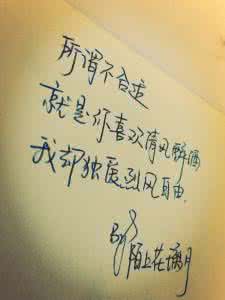 所谓不合适
就是你喜欢清风醉酒
我却独爱烈风自由.
By
陌上花漓月